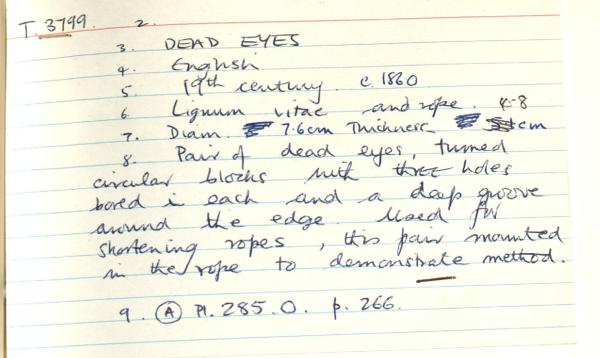 T. 3799. 2.
3. DEAD EYES
4. English
5. 19th century. c. 1860
6. Lignum vitae and rope. 4.8
7. Diam. 7.6cm Thickness cm
8. Pair of dead eyes, turned
circular blocks with three holes
bored in each and a deep groove
around the edge. Used for
shortening ropes, this pair mounted
in the rope to demonstrate method.
9. A Pl. 285.O. p. 266.